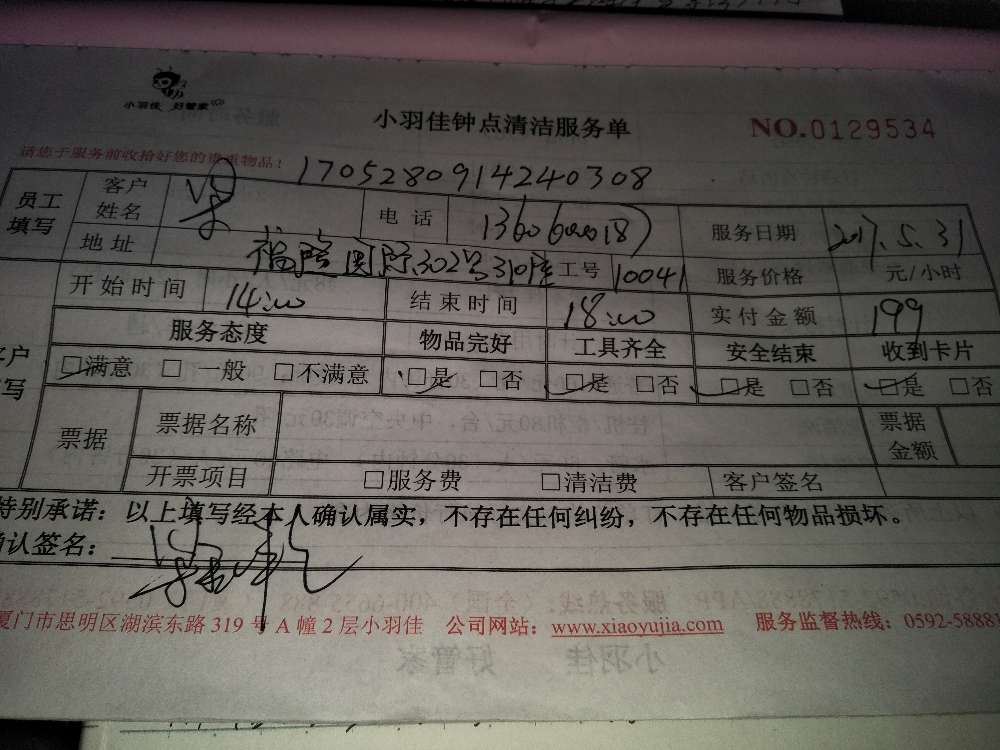 小羽佳 好管家
小羽佳钟点清洁服务单
NO.0129534
请您于服务前收拾好您的贵重物品：
17052809142240308
员工填写 客户姓名 梁 电话 服务日期 2017.5.31
地址 302号310座 工号 10041 服务价格 元/小时
开始时间 14:00 结束时间 18:00 实付金额 199
服务态度 物品完好 工具齐全 安全结束 收到卡片
□满意 □一般 □不满意 □是 □否 □是 □否 □是 □否 □是 □否
票据 票据名称 票据金额
开票项目 □服务费 □清洁费 客户签名
特别承诺：以上填写经本人确认属实，不存在任何纠纷，不存在任何物品损坏。
确认签名：
厦门市思明区湖滨东路 319 号 A 幢 2 层小羽佳 公司网站：www.xiaoyujia.com 服务监督热线：0592-58881